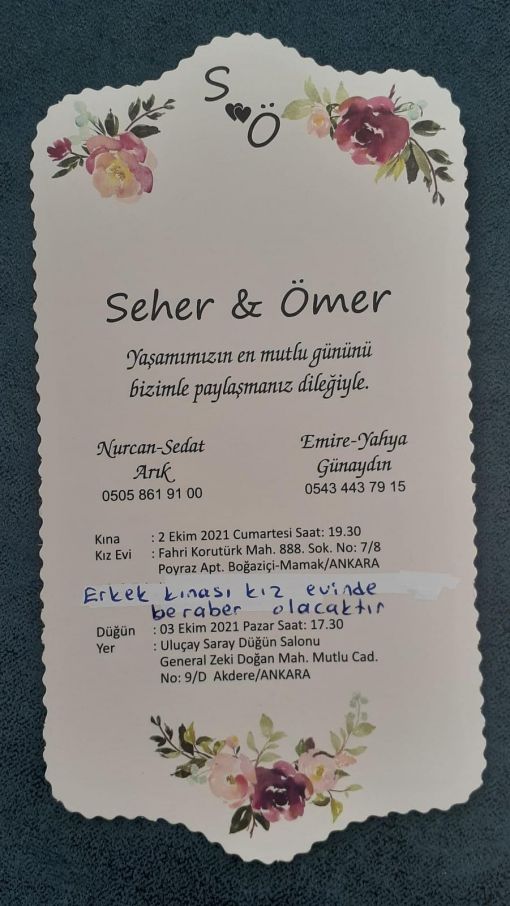 S
Ö
Seher & Ömer
Yaşamımızın en mutlu gününü
bizimle paylaşmanız dileğiyle.
Nurcan-Sedat
Arık
0505 861 91 00
Emire-Yahya
Günaydın
0543 443 79 15
Kına : 2 Ekim 2021 Cumartesi Saat: 19.30
Kız Evi : Fahri Korutürk Mah. 888. Sok. No: 7/8
Poyraz Apt. Boğaziçi-Mamak/ANKARA
Erkek kınası kız evinde
beraber olacaktır
Düğün : 03 Ekim 2021 Pazar Saat: 17.30
Yer : Uluçay Saray Düğün Salonu
General Zeki Doğan Mah. Mutlu Cad.
No: 9/D Akdere/ANKARA